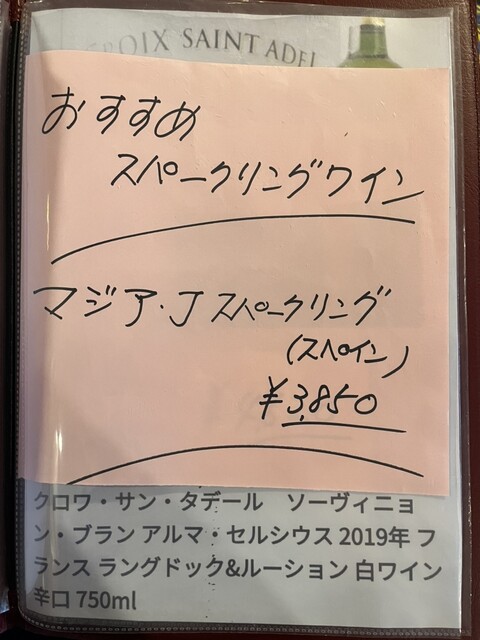 CROIX SAINT ADEL
おすすめ
スパークリングワイン
マジア・J スパークリング
(スペイン)
¥3,850
クロワ・サン・タデール　ソーヴィニョ
ン・ブラン アルマ・セルシウス 2019年 フ
ランス ラングドック&ルーション 白ワイン
辛口 750ml